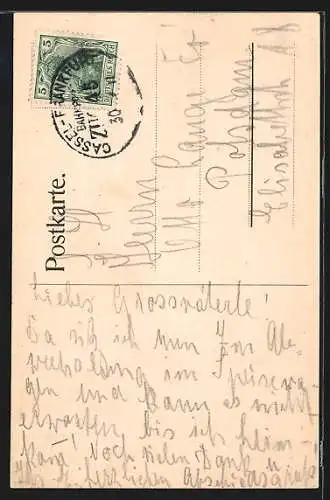 5 5
CASSEL-FRANKFURT
BAHNPOST
ZUG
30
Postkarte.
Herrn
Otto Lange
Potsdam
Elisabethstr 18
Liebes Grossväterle!
Da sitz ich nun im
im Speisewa-
gen und kann es nicht
erwarten bis ich heim-
kam! Noch vielen Dank u.
herzlichen Abschiedsgruss